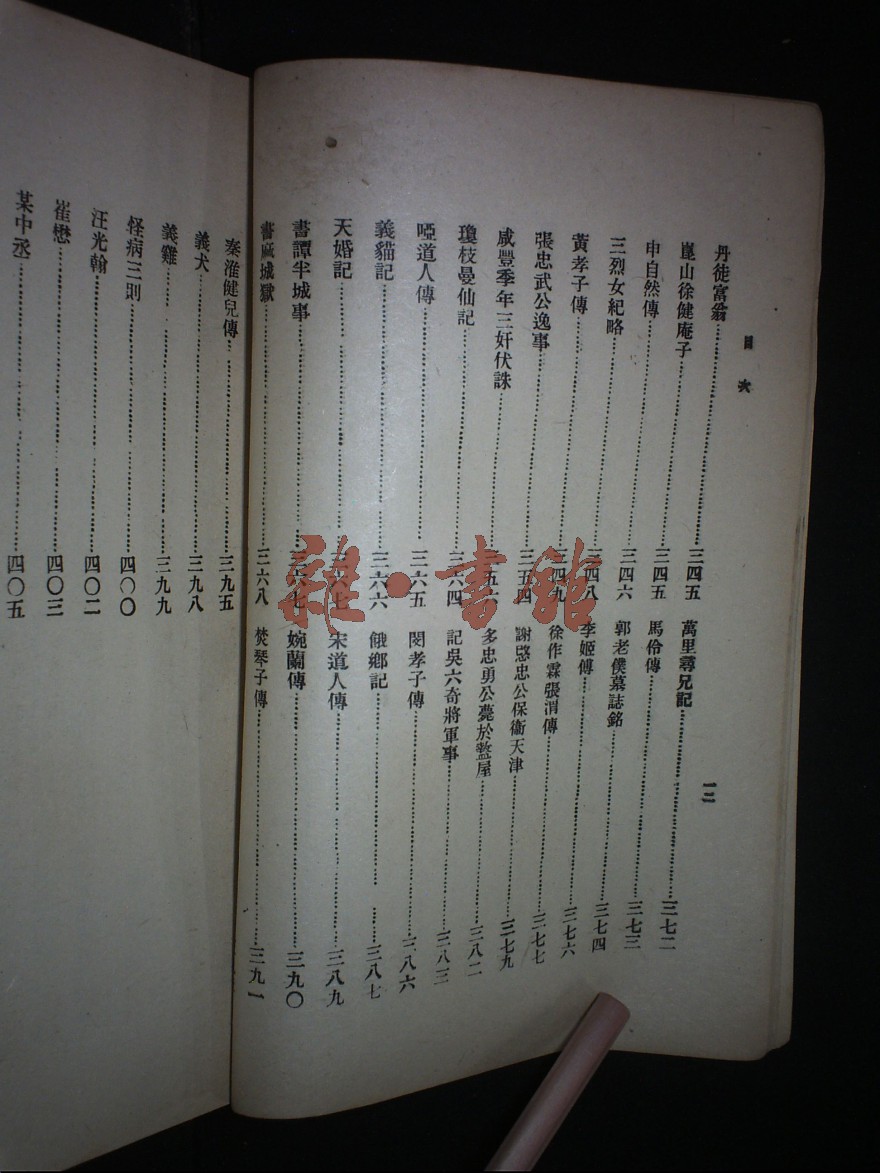 目次
一二
丹徒富翁……三四五
崑山徐健庵子……三四五
申自然傳……三四六
三烈女紀略……三四八
黃孝子傳……三四九
張忠武公逸事……三五四
咸豐季年三奸伏誅……三五六
瓊枝曼仙記……三六四
啞道人傳……三六五
義貓記……三六六
天婚記……三六七
書譚半城事……三六七
書麻城獄……三六八
萬里尋兄記……三七二
馬伶傳……三七三
郭老僕墓誌銘……三七四
李姬傳……三七六
徐作霖張渭傳……三七七
謝愍忠公保衞天津……三七九
多忠勇公薨於盩厔……三八二
記吳六奇將軍事……三八三
閔孝子傳……三八六
餓鄉記……三八七
宋道人傳……三八九
婉蘭傳……三九〇
焚琴子傳……三九一
秦淮健兒傳……三九五
義犬……三九八
義雞……三九九
怪病三則……四〇〇
汪光翰……四〇二
崔懋……四〇三
某中丞……四〇五
雜·書館